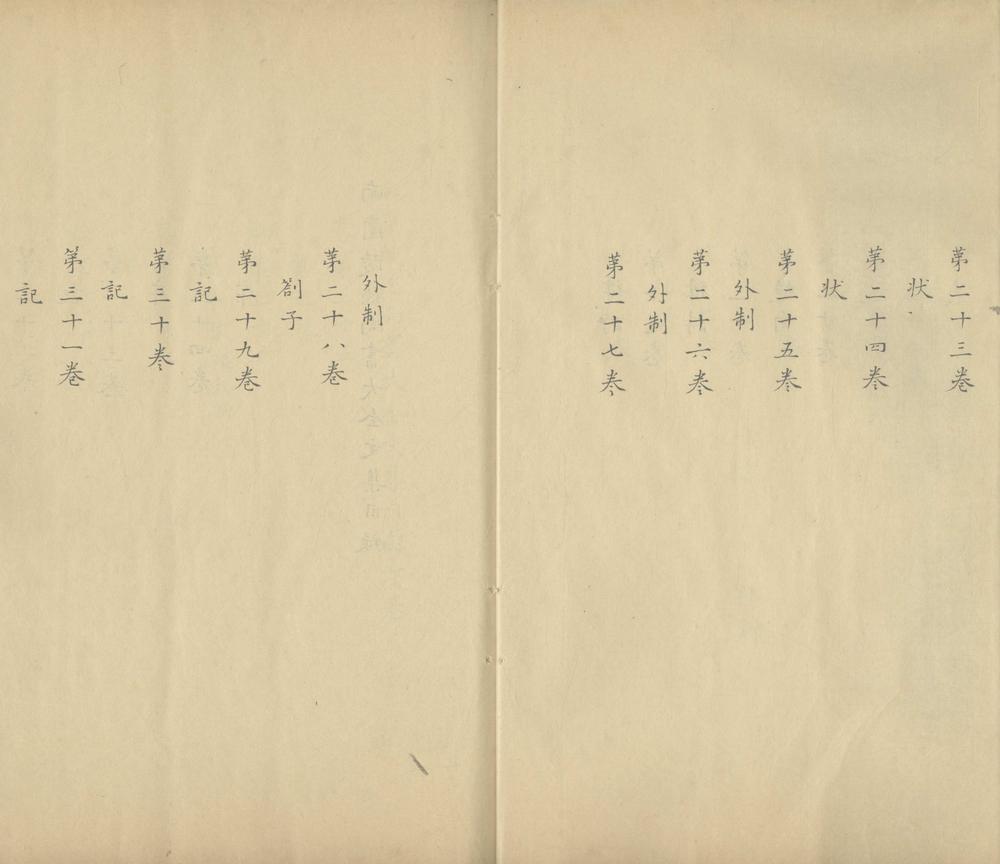 第二十三卷
状
第二十四卷
状
第二十五卷
外制
第二十六卷
外制
第二十七卷
外制
第二十八卷
劄子
第二十九卷
記
第三十卷
記
第三十一卷
記